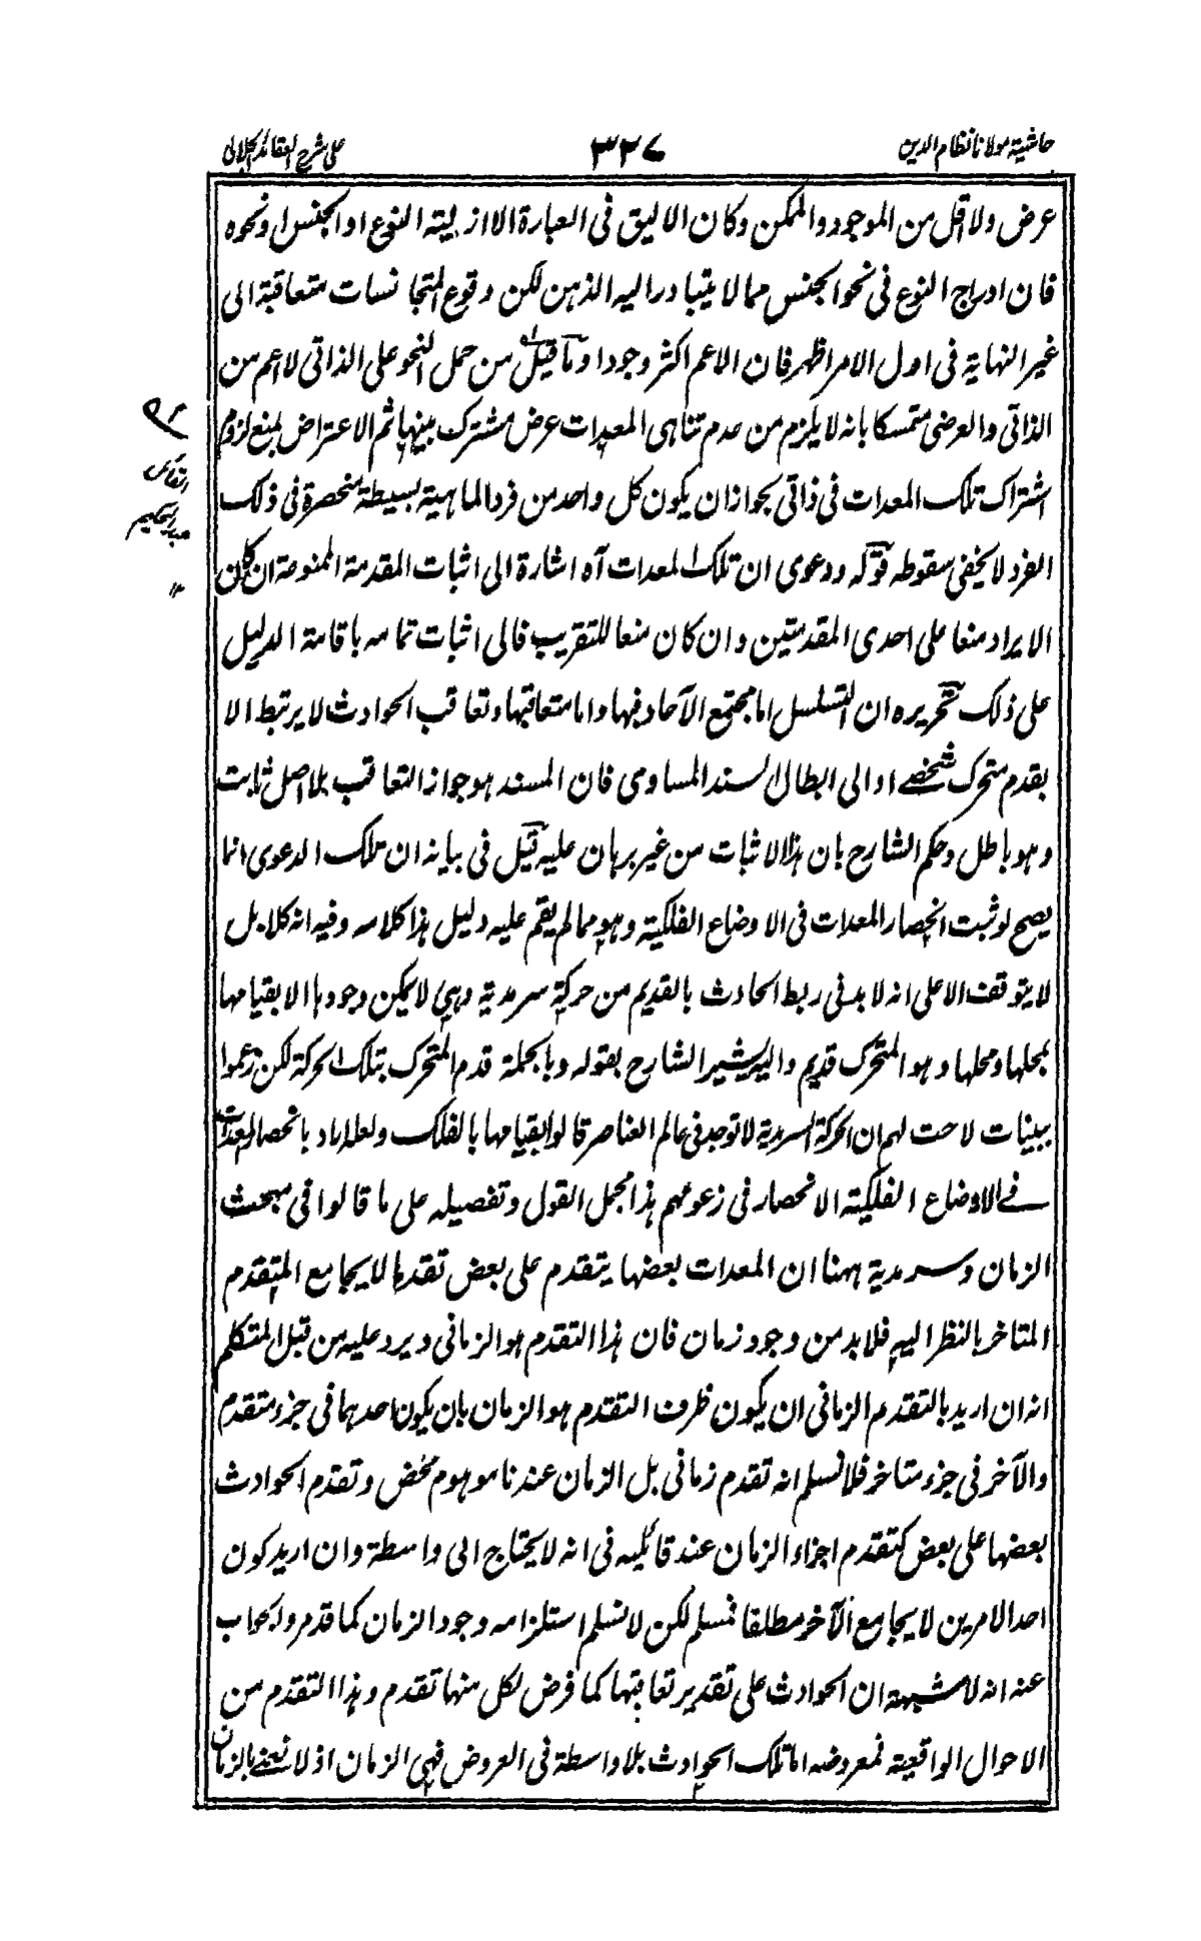 حاشیة مولانا نظام الدین ۳۲۷ علی شرح العقائد الجلالی
عرض ولا اقل من الموجود والممکن وکان الالیق فی العبارة الاازلیة النوع او الجنس او نحوه
فان ادراج النوع فی نحو الجنس مما لا یتبادر الیه الذهن لکن وقوع المتجانسات متعاقبة الی
غیر النهایة فی اول الامر اظهر فان الاعم اکثر وجودا وما قیل من حمل النحو علی الذاتی لا اعم من
الذاتی والعرضی متمسکا بانه لا یلزم من عدم تناهی المعدات عرض مشترک بینها ثم الاعتراض بمنع لزوم
اشتراک تلک المعدات فی ذاتی بجواز ان یکون کل واحد من فرد الماهیة بسیطة منحصرة فی ذلک
الفرد لا یخفی سقوطه قوله ودعوی ان تلک المعدات آه اشارة الی اثبات المقدمة الممنوعة ان کان
الایراد منعا علی احدی المقدمتین وان کان منعا للتقریب فالی اثبات تمامه باقامة الدلیل
علی ذلک تحریره ان التسلسل اما مجتمع الآحاد فیها واما متعاقبها وتعاقب الحوادث لا یرتبط الا
بقدم متحرک شخصے او الی ابطال السند المساوی فان المسند هو جواز التعاقب بلا اصل ثابت
وهو باطل وحکم الشارح بان هذا الاثبات من غیر برهان علیه قیل فی بیانه ان تلک الدعوی انما
یصح لو ثبت انحصار المعدات فی الاوضاع الفلکیة وهو مما لم یقم علیه دلیل هذا کلامه وفیه انه کلا بل
لا یتوقف الا علی انه لا بد فی ربط الحادث بالقدیم من حرکة سرمدیة وهی لا یمکن وجودها الا بقیامها
بمحلها ومحلها وهو المتحرک قدیم والیه یشیر الشارح بقوله وبالجملة قدم المتحرک بتلک الحرکة لکن زعموا
ببینات لاحت لهم ان الحرکة السرمدیة لا توجد فی عالم العناصر قالوا بقیامها بالفلک ولعله اراد بانحصار المعدات
فے الاوضاع الفلکیة الانحصار فی زعومهم هذا مجمل القول وتفصیله علی ما قالوا فی مبحث
الزمان وسرمدیة ههنا ان المعدات بعضها یتقدم علی بعض تقدما لا یجامع المتقدم
المتاخر بالنظر الیه فلا بد من وجود زمان فان هذا التقدم هو الزمانی ویرد علیه من قبل المتکلم
انه ان ارید بالتقدم الزمانی ان یکون ظرف التقدم هو الزمان بان یکون احدهما فی جزء متقدم
والآخر فی جزء متاخر فلا نسلم انه تقدم زمانی بل الزمان عندنا موهوم محض وتقدم الحوادث
بعضها علی بعض کتقدم اجزاء الزمان عند قائلیه فی انه لا یحتاج الی واسطة وان ارید کون
احد الامرین لا یجامع الآخر مطلقا فمسلم لکن لا نسلم استلزامه وجود الزمان کما قدم والجواب
عنه انه لا شبهة ان الحوادث علی تقدیر تعاقبها کما فرض لکل منها تقدم وهذا التقدم من
الاحوال الواقعیة فمعروضه اما تلک الحوادث بلا واسطة فی العروض فهی الزمان اذ لا نعنے بالزمان